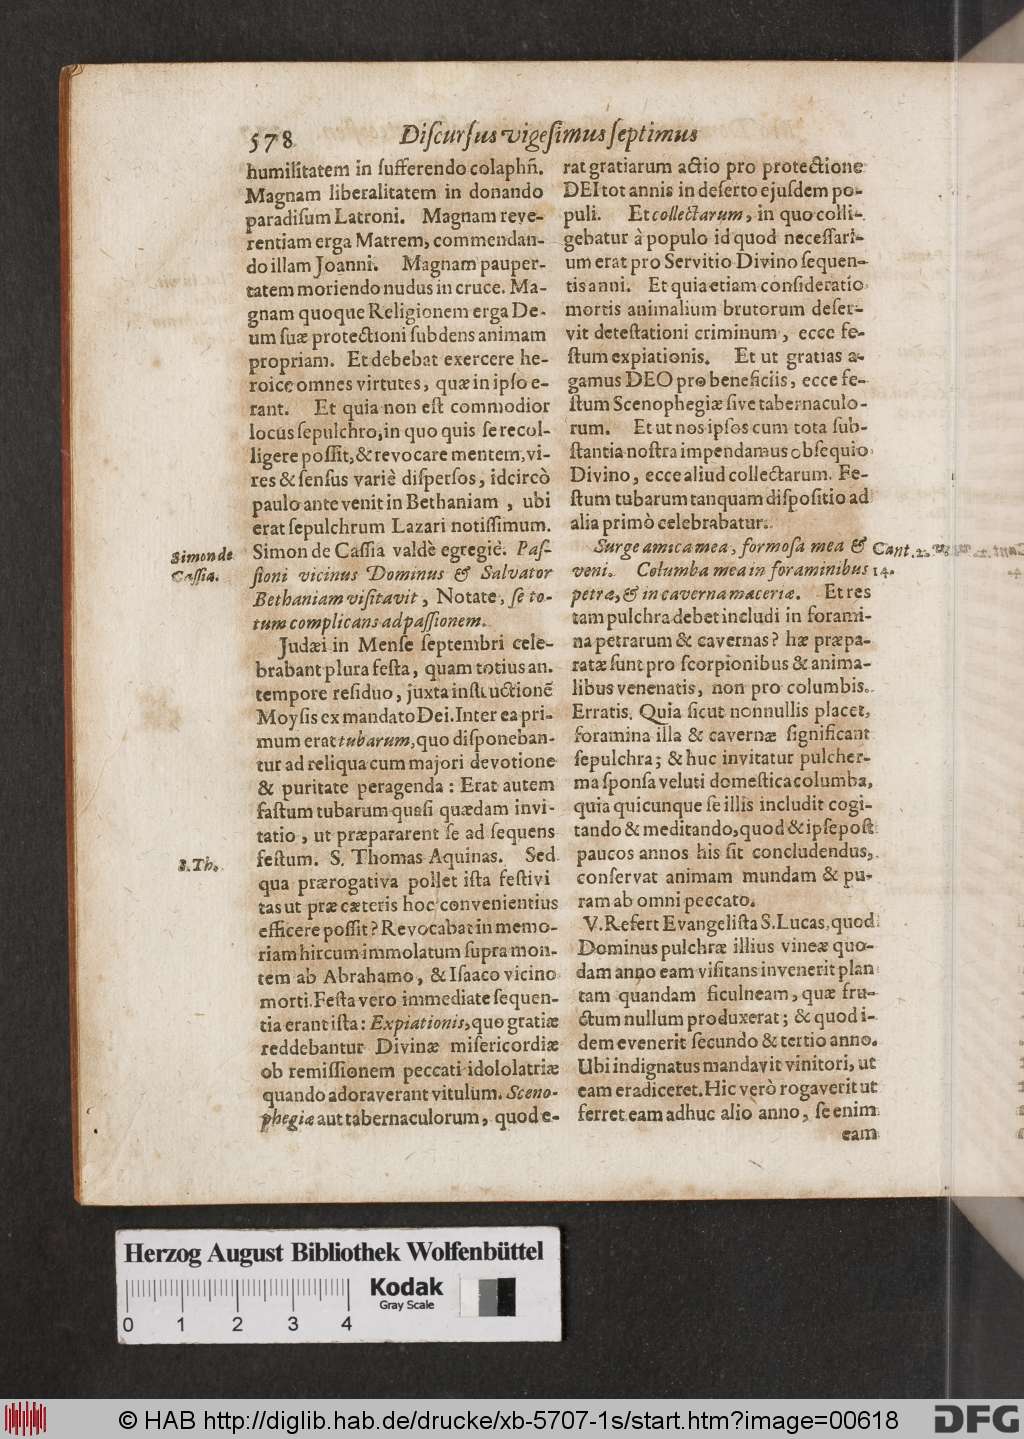 578 Diſcurſus vigeſimus ſeptimus
humilitatem in ſufferendo colaphñ.
Magnam liberalitatem in donando
paradiſum Latroni. Magnam reve-
rentiam erga Matrem, commendan-
do illam Joanni. Magnam pauper-
tatem moriendo nudus in cruce. Ma-
gnam quoque Religionem erga De-
um ſuæ protectioni ſubdens animam
propriam. Et debebat exercere he-
roice omnes virtutes, quæ in ipſo e-
rant. Et quia non eſt commodior
locus ſepulchro, in quo quis ſe recol-
ligere poſſit, & revocare mentem, vi-
res & ſenſus variè diſperſos, idcircò
paulo ante venit in Bethaniam, ubi
erat ſepulchrum Lazari notiſſimum.
Simon de Caſſia valdè egregiè. Paſ-
ſioni vicinus Dominus & Salvator
Bethaniam viſitavit, Notate, ſe to-
tum complicans ad paſſionem.
Judæi in Menſe ſeptembri cele-
brabant plura feſta, quam totius an.
tempore reſiduo, juxta inſtructionē
Moyſis ex mandato Dei. Inter ea pri-
mum erat tubarum, quo diſponeban-
tur ad reliqua cum majori devotione
& puritate peragenda: Erat autem
faſtum tubarum quaſi quædam invi-
tatio, ut præpararent ſe ad ſequens
feſtum. S. Thomas Aquinas. Sed
qua prærogativa pollet iſta feſtivi
tas ut præ cæteris hoc convenientius
efficere poſſit? Revocabat in memo-
riam hircum immolatum ſupra mon-
tem ab Abrahamo, & Iſaaco vicino
morti. Feſta vero immediate ſequen-
tia erant iſta: Expiationis, quo gratiæ
reddebantur Divinæ miſericordiæ
ob remiſſionem peccati idololatriæ
quando adoraverant vitulum. Sceno-
phegiæ aut tabernaculorum, quod e-
Simon de
Caſſia.
S. Th.
rat gratiarum actio pro protectione
DEI tot annis in deſerto ejuſdem po-
puli. Et collectarum, in quo colli-
gebatur à populo id quod neceſſari-
um erat pro Servitio Divino ſequen-
tis anni. Et quia etiam conſideratio
mortis animalium brutorum deſer-
vit deteſtationi criminum, ecce fe-
ſtum expiationis. Et ut gratias a-
gamus DEO pro beneficiis, ecce fe-
ſtum Scenophegiæ ſive tabernaculo-
rum. Et ut nos ipſos cum tota ſub-
ſtantia noſtra impendamus obſequio
Divino, ecce aliud collectarum. Fe-
ſtum tubarum tanquam diſpoſitio ad
alia primò celebrabatur.
Surge amica mea, formoſa mea &
veni. Columba mea in foraminibus
petræ, & in caverna maceriæ. Et res
tam pulchra debet includi in forami-
na petrarum & cavernas? hæ præpa-
ratæ ſunt pro ſcorpionibus & anima-
libus venenatis, non pro columbis.
Erratis. Quia ſicut nonnullis placet,
foramina illa & cavernæ ſignificant
ſepulchra; & huc invitatur pulcher-
ma ſponſa veluti domeſtica columba,
quia quicunque ſe illis includit cogi-
tando & meditando, quod & ipſe poſt
paucos annos his ſit concludendus,
conſervat animam mundam & pu-
ram ab omni peccato.
V. Refert Evangeliſta S. Lucas, quod
Dominus pulchræ illius vineæ quo-
dam anno eam viſitans invenerit plan
tam quandam ficulneam, quæ fru-
ctum nullum produxerat; & quod i-
dem evenerit ſecundo & tertio anno.
Ubi indignatus mandavit vinitori, ut
eam eradiceret. Hic verò rogaverit ut
ferret eam adhuc alio anno, ſe enim
eam
Cant. 2.
14.
Herzog August Bibliothek Wolfenbüttel
Kodak
Gray Scale
0 1 2 3 4
© HAB http://diglib.hab.de/drucke/xb-5707-1s/start.htm?image=00618
DFG